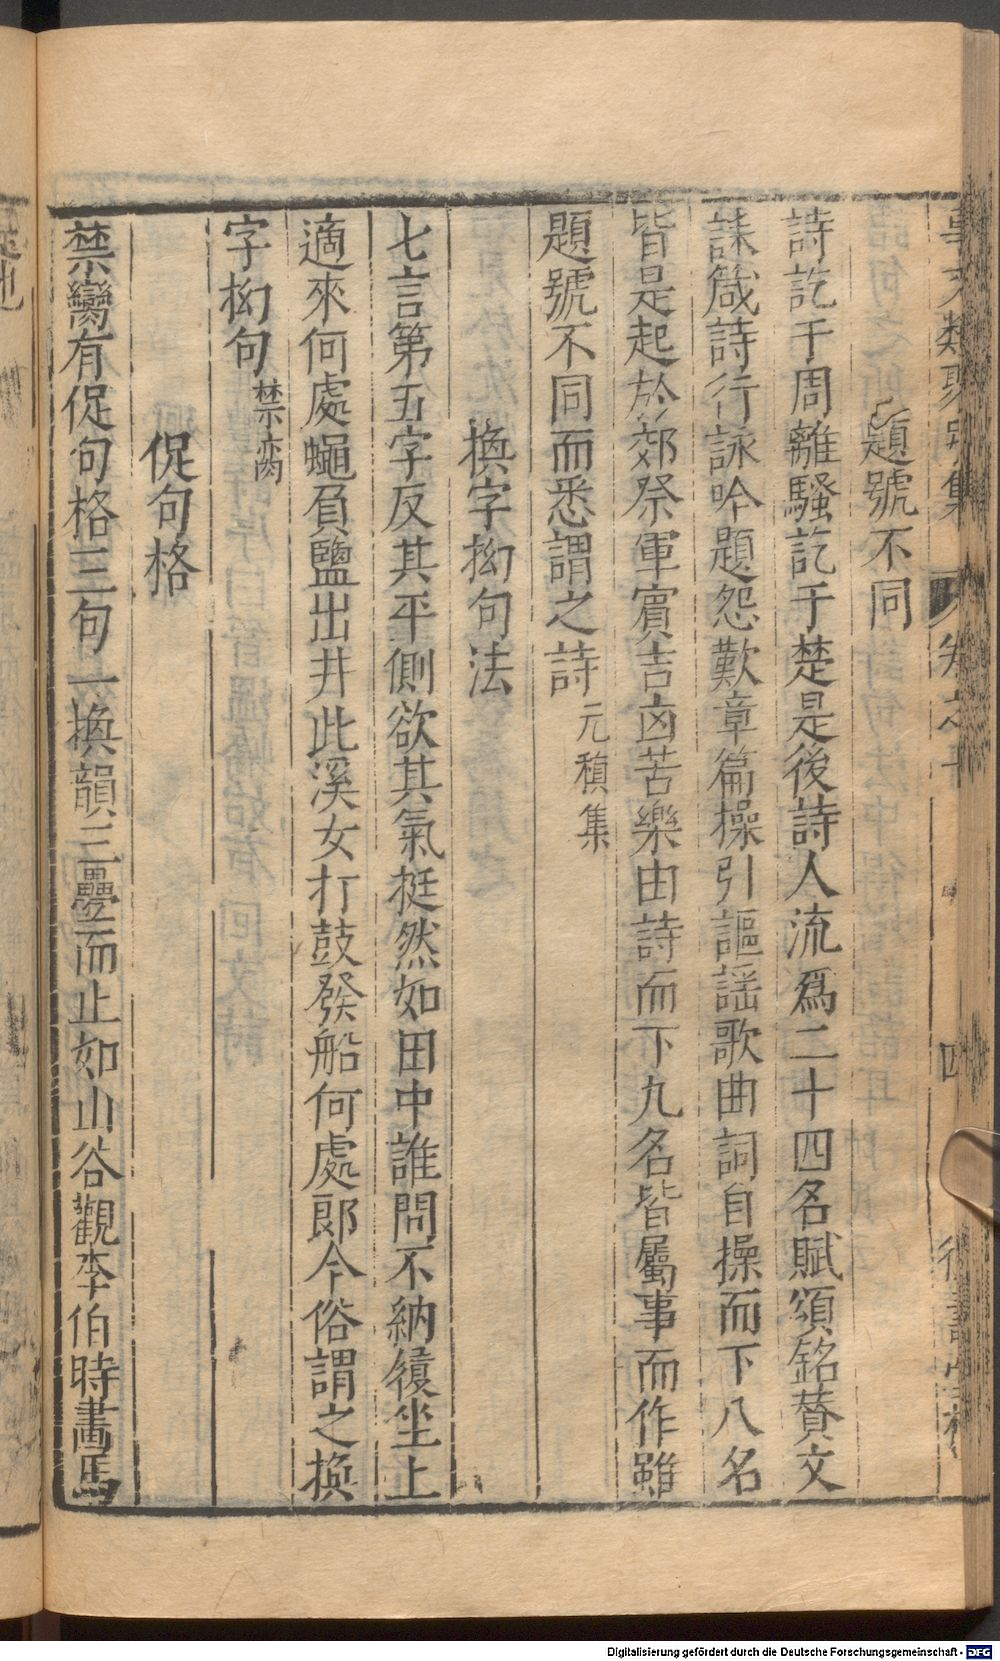 事文類聚別集 卷之 四
題號不同
詩訖于周離騷訖于楚是後詩人流爲二十四名賦頌銘贊文
誄箴詩行詠吟題怨歎章篇操引謳謠歌曲詞自操而下八名
皆是起於郊祭軍賓吉凶苦樂由詩而下九名皆屬事而作雖
題號不同而悉謂之詩 元稹集
換字拗句法
七言第五字反其平側欲其氣挺然如田中誰問不納履坐上
適來何處蠅負鹽出井此溪女打鼓發船何處郎今俗謂之換
字拗句 禁臠
促句格
禁臠有促句格三句一換韻三疊而止如山谷觀李伯時畫馬
Digitalisierung gefördert durch die Deutsche Forschungsgemeinschaft - DFG